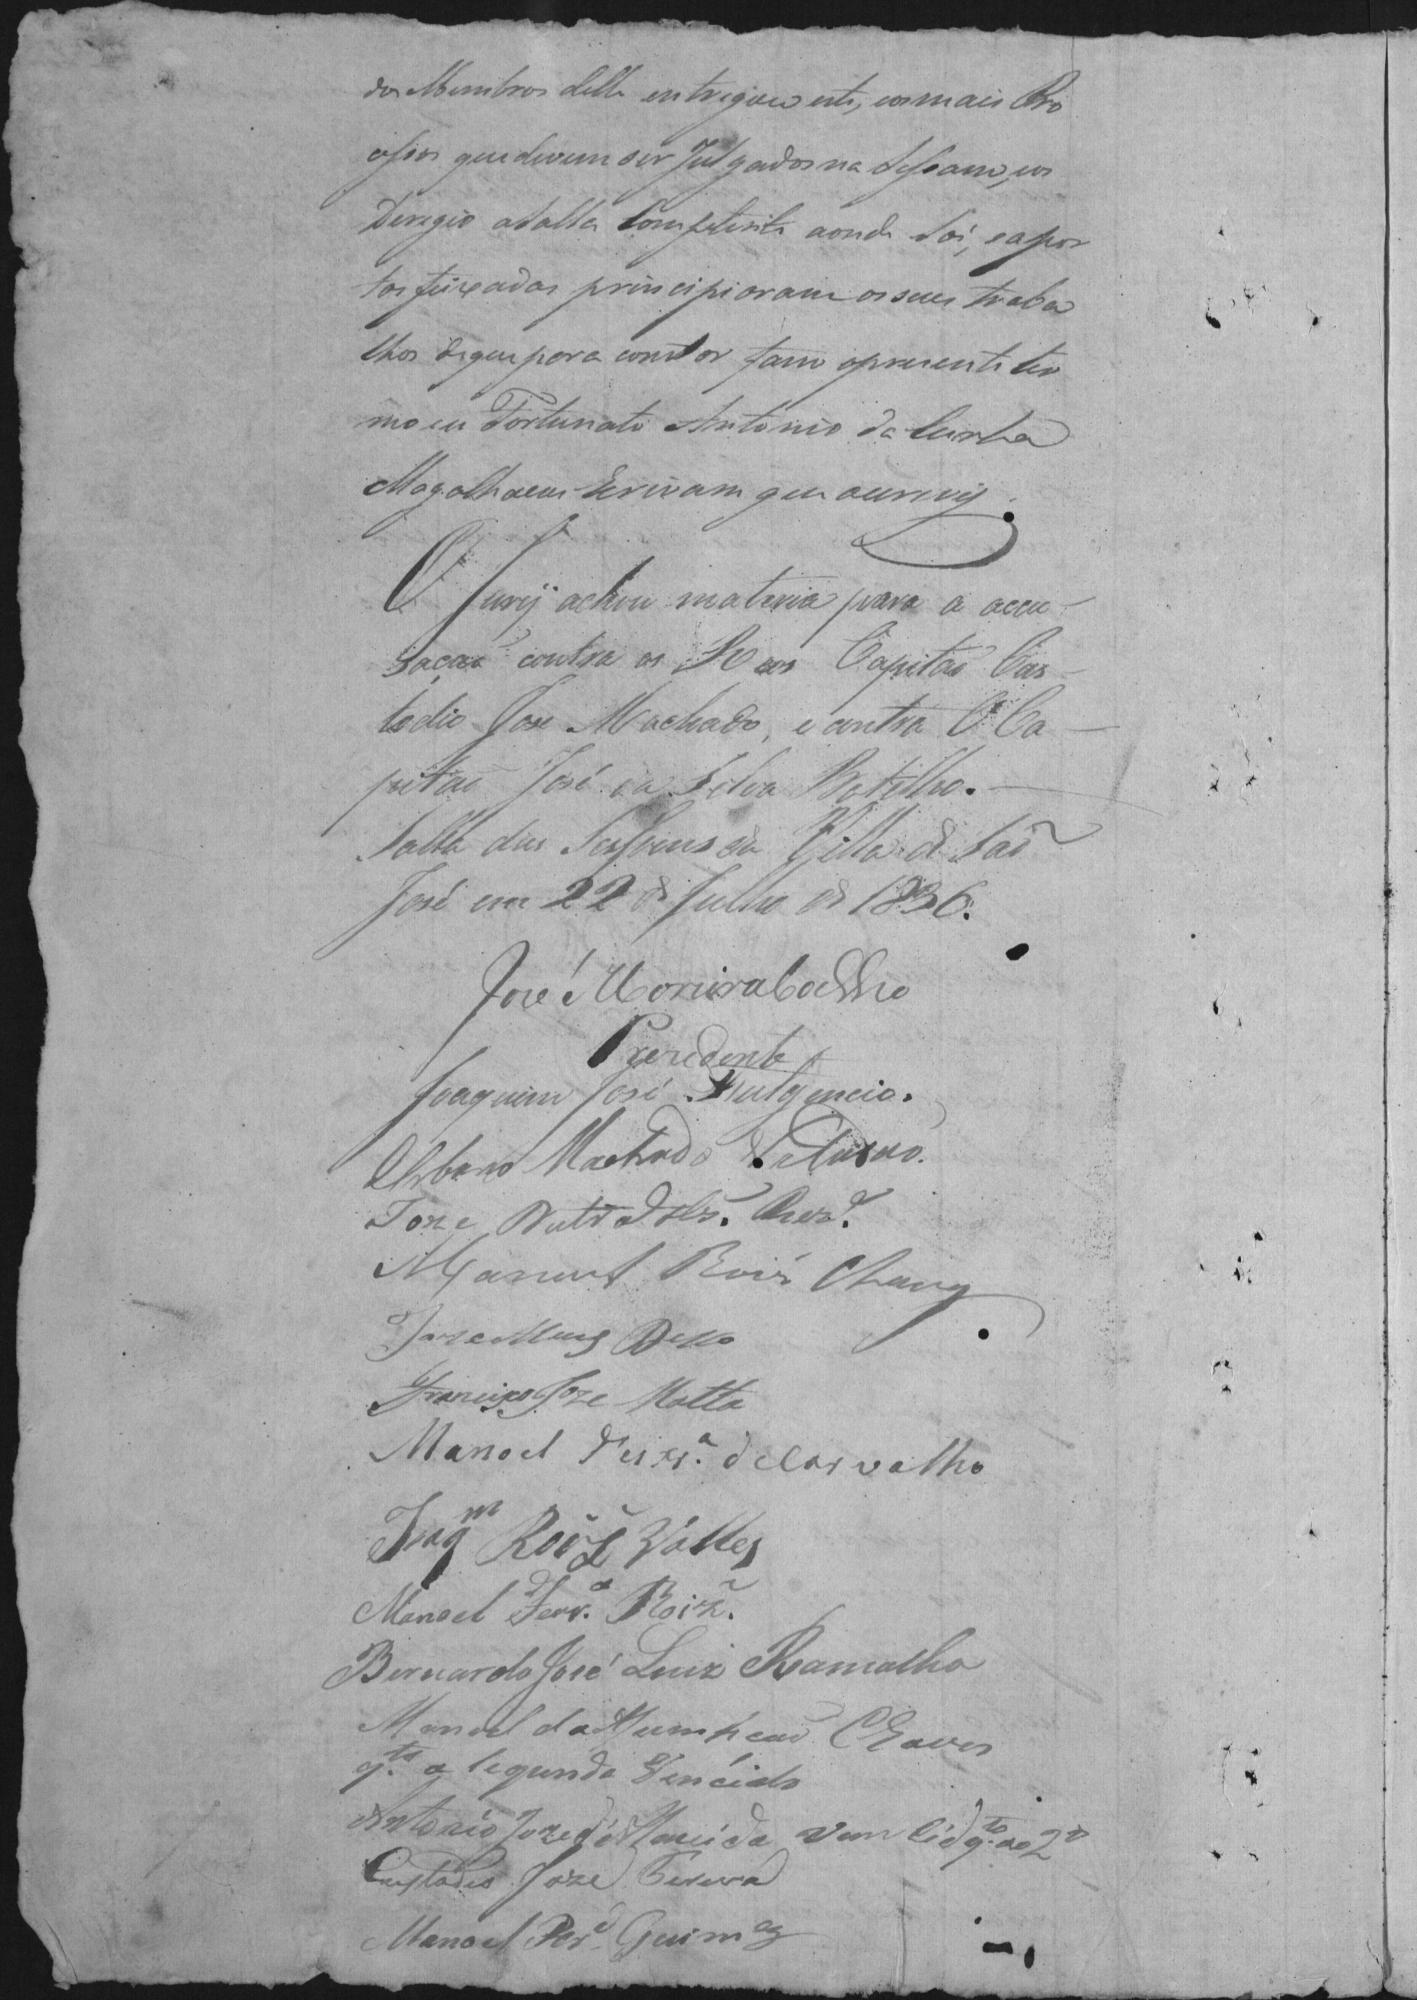 dos Membros della entregou este, eosmais Pro
cessos quedevem ser Julgados na Sessam, eos
Derigio aSalla Competente aonde Foi, eapor
tas feixadas principioram osseus traba
lhos dequepara constar fasso opresente ter
mo eu Fortunato Antonio da Cunha
Magalhaens Escrivam que aescrevy.
O Jurÿ achou materia para a accu-
saçaõ contra os Reos Capitaõ Cus-
todio Jose Machado, e contra O Ca-
pitaõ José da Silva Botelho.
Salla das Sessoens da Villa de Saõ
José em 22 de Julho de 1836.
José Moreira Coelho
Prezidente
Joaquim José Fulgencio.
Urbano Machado
Joze Dutra
Manuel Roiz Chaves
Joze
Francisco Joze Motta
Manoel Ferrª. deCarvalho
Joaqm Roiz Valles
Manoel Ferrª. Roiz.
Bernardo José Luiz Ramalho
Manoel da Asumpcaõ Chaves
qto. a segunda Vencido
Antonio Joze de Almeida Vencido qto. ao 2º
Custodio Joze Pereira
Manoel Perª Guimes